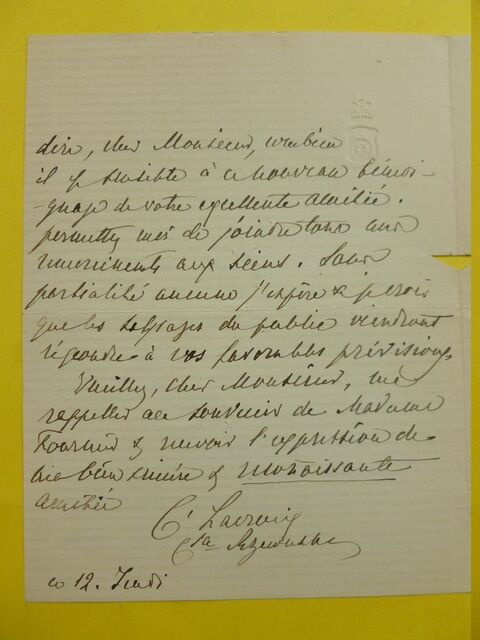 dire, cher Monsieur, combien
il est sensible à ce nouveau témoi-
gnage de votre excellente amitié.
permettez moi de joindre tous mes
remerciments aux siens. Sans
partialité aucune j'espère & je crois
que les suffrages du public viendront
répondre à vos favorables prévisions
Veuillez, cher Monsieur, me
rappeller au souvenir de Madame
& recevoir l'expression de
ma bien sincère & reconnaissante
amitié
Css Lacroix
ce 12. Jeudi